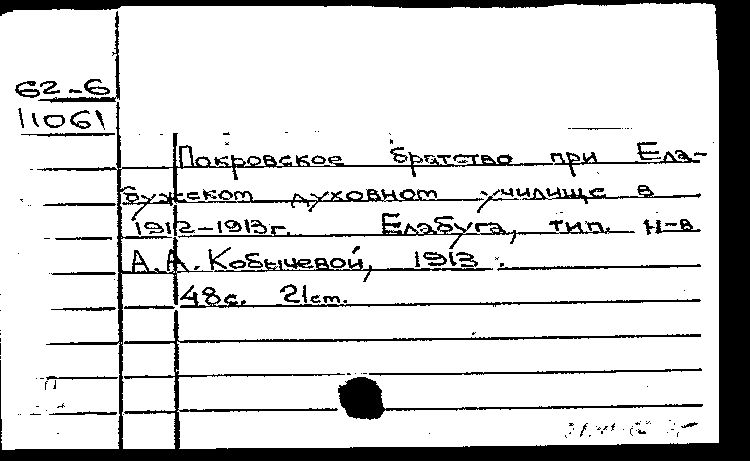 62-6
11061
Покровское братство при Ела-
бужском духовном училище в
1912-1913г. Елабуга, тип. н-в
А.А. Кобычевой, 1913.
48с. 21см.